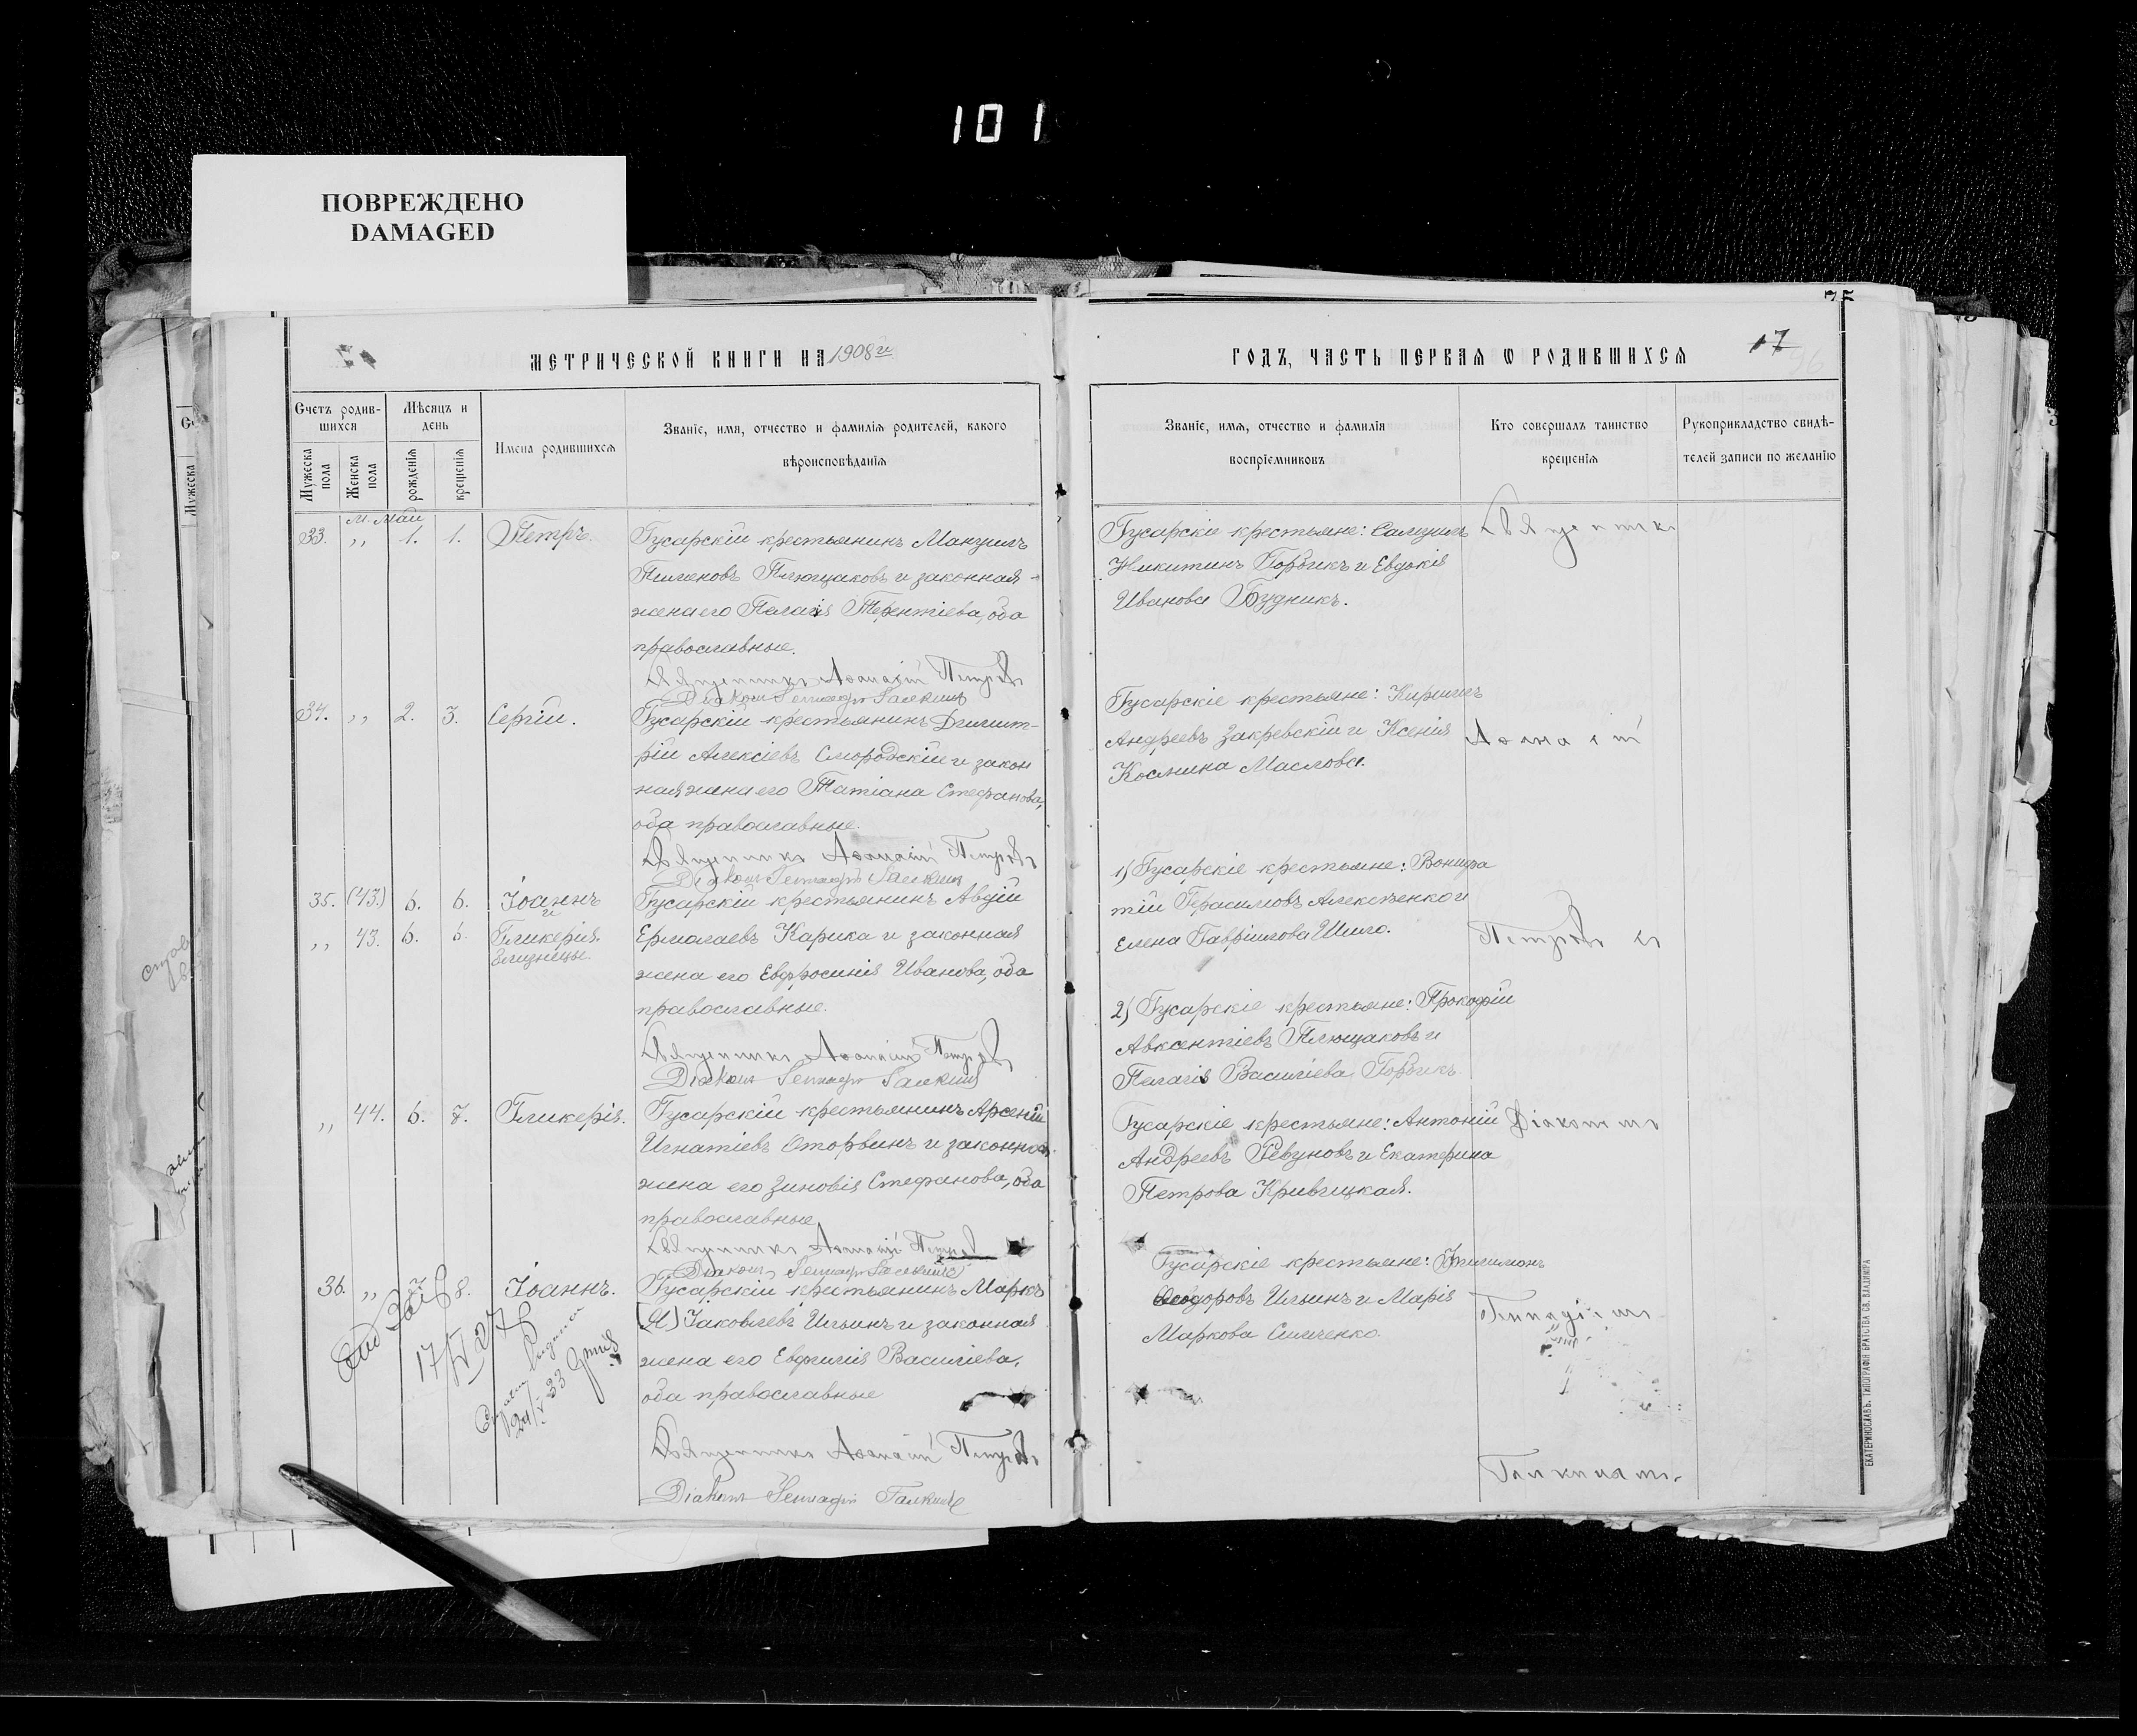 101
ПОВРЕЖДЕНО
DAMAGED
МЕТРИЧЕСКОЙ КНИГИ НА 1908 й
Счетъ родив-
шихся
Мѣсяцъ и
день
Имена родившихся
Званіе, имя, отчество и фамилія родителей, какого
вѣроисповѣданія
Мужеска
пола
Женска
пола
рожденія
крещенія
м. Май
33. ,, 1. 1. Петръ.
Гусарскій крестьянинъ Мануилъ
Пименовъ Плющаковъ и законная
жена его Пелагія Терентіева, оба
православные.
Священникъ Аѳанасій Петровъ
Діаконъ Геннадій Галкинъ
34. ,, 2. 3. Сергій.
Гусарскій крестьянинъ Димит-
рій Алексіевъ Смородскій и закон
ная жена его Татіана Стефанова,
оба православные.
Священникъ Аѳанасій Петровъ
Діаконъ Геннадій Галкинъ
35. (43.) 6. 6. Іоаннъ
и
,, 43. 6. 6. Гликерія.
близнецы.
Гусарскій крестьянинъ Авдій
Ермолаевъ Карика и законная
жена его Евфросинія Иванова, оба
православные.
Священникъ Аѳанасій Петровъ
Діаконъ Геннадій Галкинъ
,, 44. 6. 7. Гликерія.
Гусарскій крестьянинъ Арсеній
Игнатіевъ Оторвинъ и законная
жена его Зиновія Стефанова, оба
православные
Священникъ Аѳанасій Петровъ
Діаконъ Геннадій Галкинъ
36. ,, 7. 8. Іоаннъ.
Гусарскій крестьянинъ Маркъ
Іаковлевъ Ильинъ и законная
жена его Евфимія Василіева,
оба православные
Священникъ Аѳанасій Петровъ
Діаконъ Геннадій Галкинъ
17/IV 27
24/V 33
ГОДЪ, ЧАСТЬ ПЕРВАЯ Ѡ РОДИВШИХСЯ
17
96
Званіе, имя, отчество и фамилія
воспріемниковъ
Кто совершалъ таинство
крещенія
Рукоприкладство свидѣ-
телей записи по желанію
Гусарскіе крестьяне: Самуилъ
Никитинъ Горбикъ и Евдокія
Иванова Будникъ.
Священникъ
Гусарскіе крестьяне: Кириллъ
Андреевъ Закревскій и Ксенія
Космина Маслова.
Аѳанасій
1) Гусарскіе крестьяне: Вонифа
тій Герасимовъ Алексѣенко и
Елена Гавріилова Шило.
Петровъ съ
2) Гусарскіе крестьяне: Прокофій
Авксентіевъ Плющаковъ и
Пелагія Василіева Горбикъ.
Гусарскіе крестьяне: Антоній
Андреевъ Ревуновъ и Екатерина
Петрова Кривицкая.
Діакономъ
Гусарскіе крестьяне: Филимонъ
Ѳеодоровъ Ильинъ и Марія
Маркова Симченко.
Геннадіемъ
Галкинымъ.
ЕКАТЕРИНОСЛАВЪ. ТИПОГРАФІЯ БРАТСТВА СВ. ВЛАДИМІРА